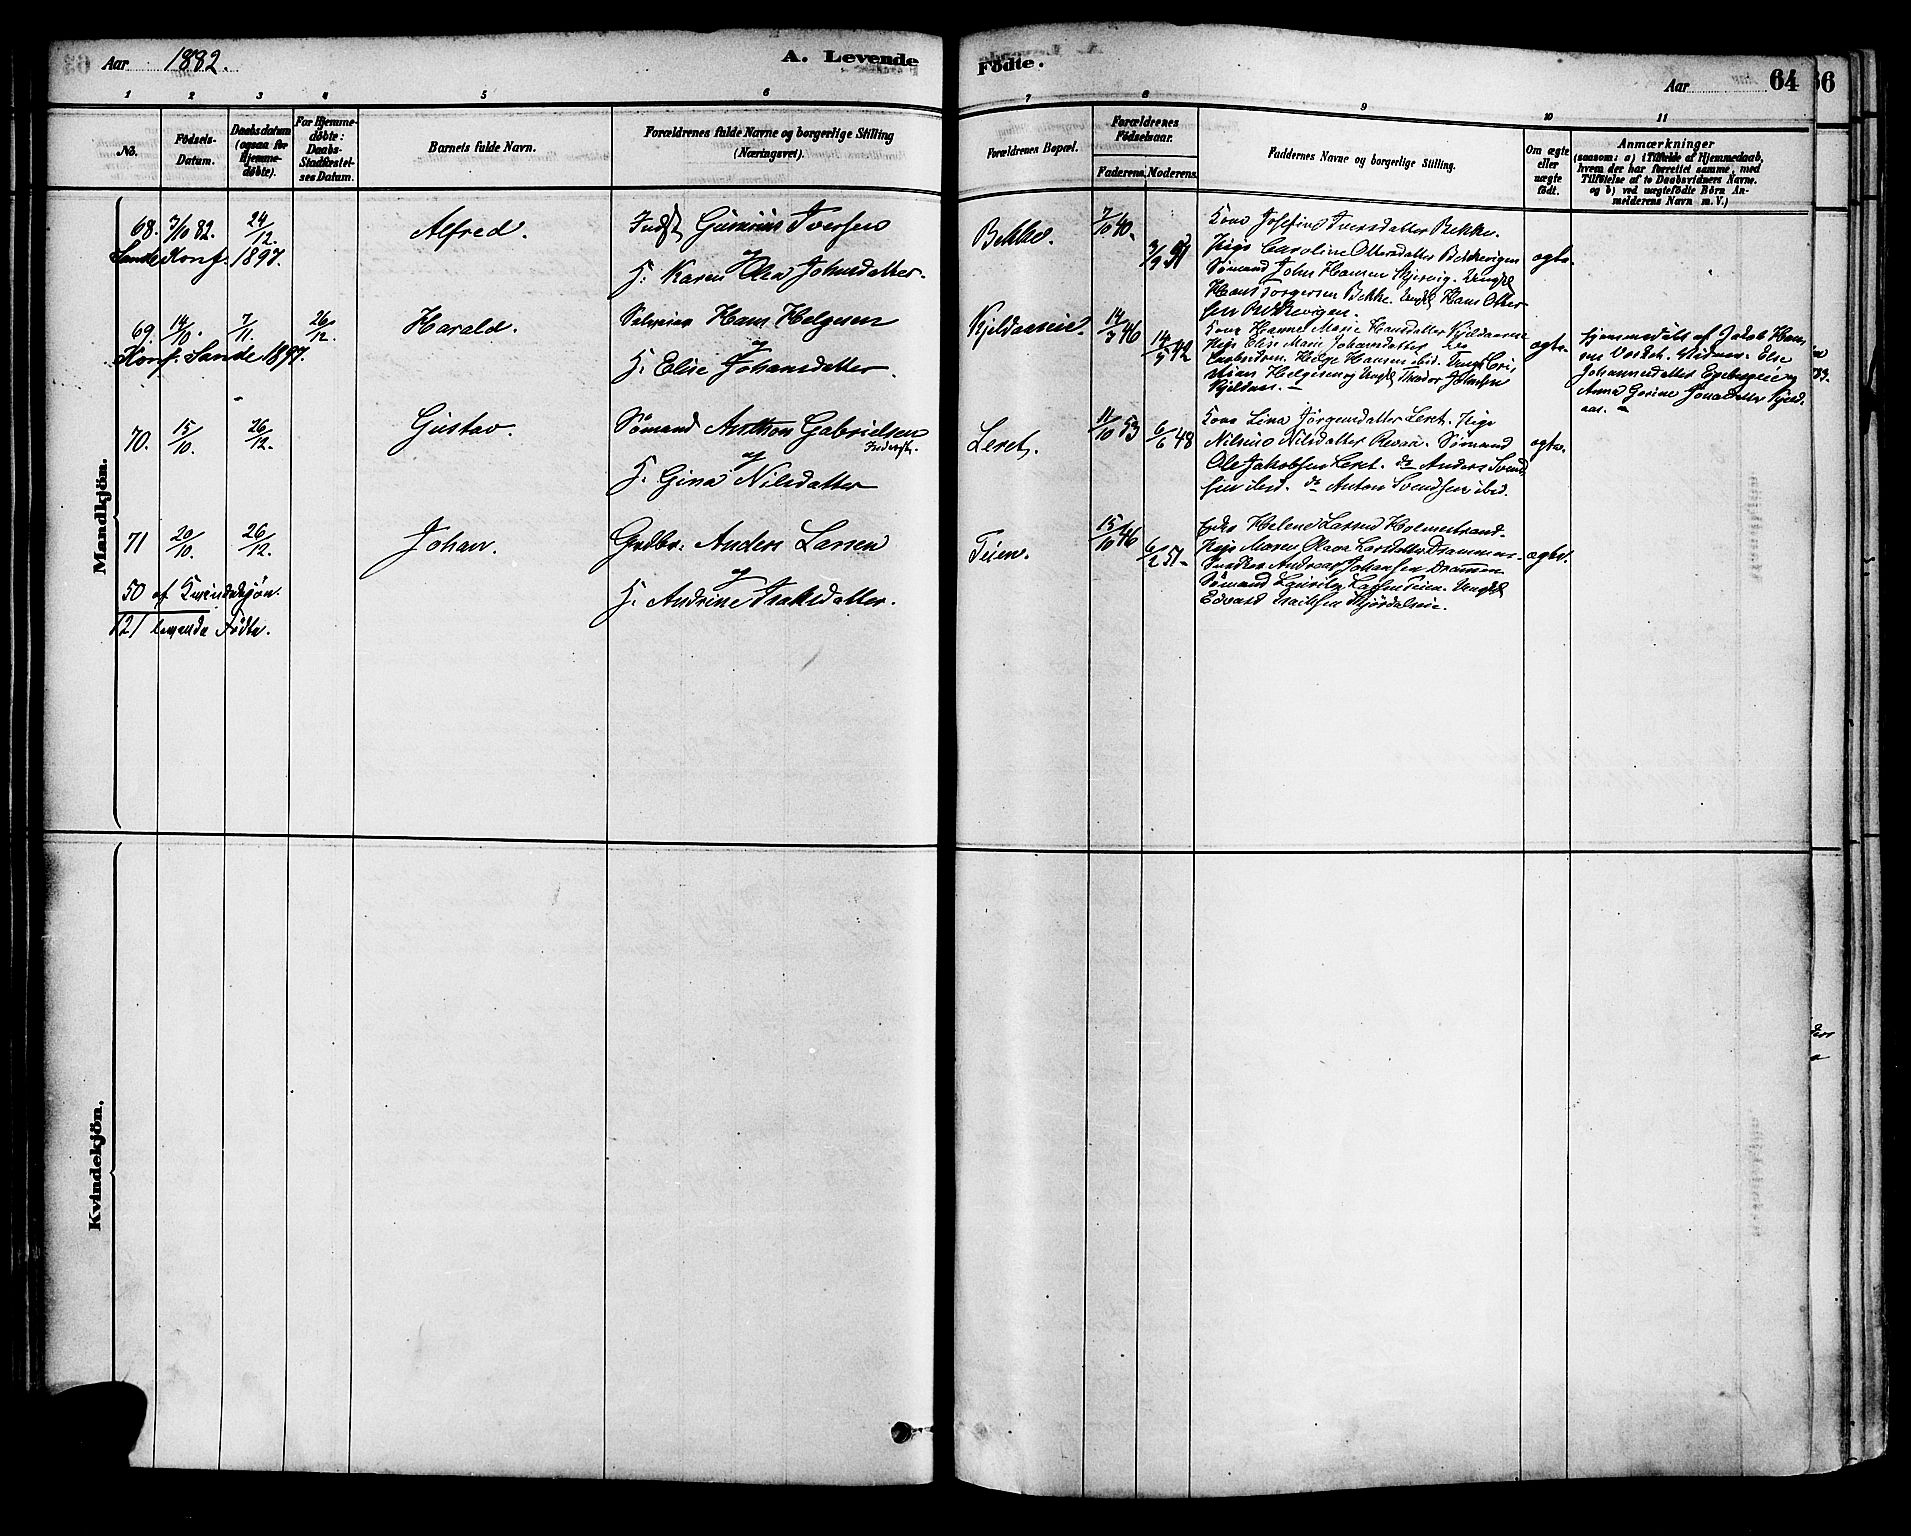 Aar 1882.
A. Levende
Fødte.
Aar
64
66
1 2 3 4 5 6 7 8 9 10 11
No.
Fødsels-Datum.
Daabsdatum (ogsaa for Hjemmedøbte).
For Hjemmedøbte: Daabs-Stadfæstelses Datum.
Barnets fulde Navn.
Forældrenes fulde Navne og borgerlige Stilling (Næringsvei).
Forældrenes Bopæl.
Forældrenes Fødselsaar.
Faderens. Moderens.
Faddernes Navne og borgerlige Stilling.
Om ægte eller uægte født.
Anmærkninger
(saasom: a) i Tilfælde af Hjemmedaab,
hvem der har forrettet samme, med
Tilføielse af to Daabsvidners Navne.
og b) ved uægtefødte Børn An-
melderens Navn m. V.)
Mandkjön.
68. 7/10 82. 24/12. Alfred. Iver­sen Bekke. 7/10 40.
Sande Konf. 1897.
og
F. Karen Olea Johnsdatter.
Kone Josefine Iversdatter Bekke.
Pige Caroline Ottersdatter Bekkevigen
Sømand John Hansen Skjervig. Ungkl
Hans Torgersen Bekke. Ungkl Hans Otter-
sen Bekkevigen.
ægte.
69. 14/10. 7/11. 26/12. Harald. Selveier Hans Helgesen
Konf. Sande 1897.
og
F. Elise Johansdatter.
Kjeldaaseie. 14/3 46 14/5 42
Kone Hanne Marie Hansdatter Kjeldaasen
Pige Elise Marie Johannsdatter
Helge Hansen ibid. Ungkl Cri-
stian Helgesen og Ungkl Thodor Johnsen
Kjeldaas.
ægte
Hjemmedøbt af Jakob Han-
sen Vidner. Else
Johannesdatter
Anna Gorine Jonsdatter Kjeld-
aas.
70. 15/10. 26/12. Gustav. Sømand Anthon Gabrielsen
og
F. Gina Nilsdatter
Leret. 11/10 53 6/6 48
Kone Lina Jørgensdatter Leret. Pige
Nilsine Nilsdatter Revaa. Sømand
Ole Jakobsen Leret. do Anders Svend-
sen ibid. do Anton Svendsen ibid.
ægte.
71 20/10. 26/12. Johan. Grdbr. Anders Larsen
og
F. Andrine Isaksdatter.
Teien. 15/10 46 6/2 51.
Enke Helene Larsen Holmestrand.
Pige Maren Olava Larsdatter Drammen.
Snedker Andreas Johansen Drammen
Sømand Lauritz Larsen Teien. Ungkl
Edvard Isaksen Fjordalseie.
ægte.
50 af Kvindekjøn.
121 levende Fødte.
Kvindekjön.